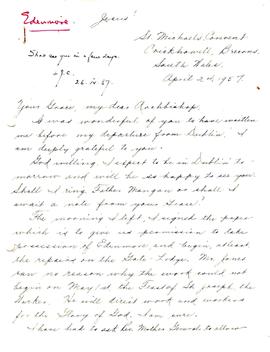 Edenmore.
Jesus!
St. Michael's Convent
Crickhowell, Brecons.
South Wales.
April 2nd, 1957.
Shall see you in a few days.
+ J.C.
26.IV.57.
Your Grace, my dear Archbishop,
It was wonderful of you to have written
me before my departure from Dublin. I
am deeply grateful to you.
God willing I expect to be in Dublin to-
morrow and will be so happy to see you.
Shall I ring Father Mangan or shall I
await a note from your Grace?
The morning I left, I signed the paper
which is to give us permission to take
possession of Edenmore and begin, at least
the repairs on the Gate Lodge. Mr. Jones
can no reason why the work could not
begin on May 1st the Feast of St. Joseph the
Worker. He will direct work and workers
for the Glory of God, I am sure.
I have had to ask Rev. Mother General to allow